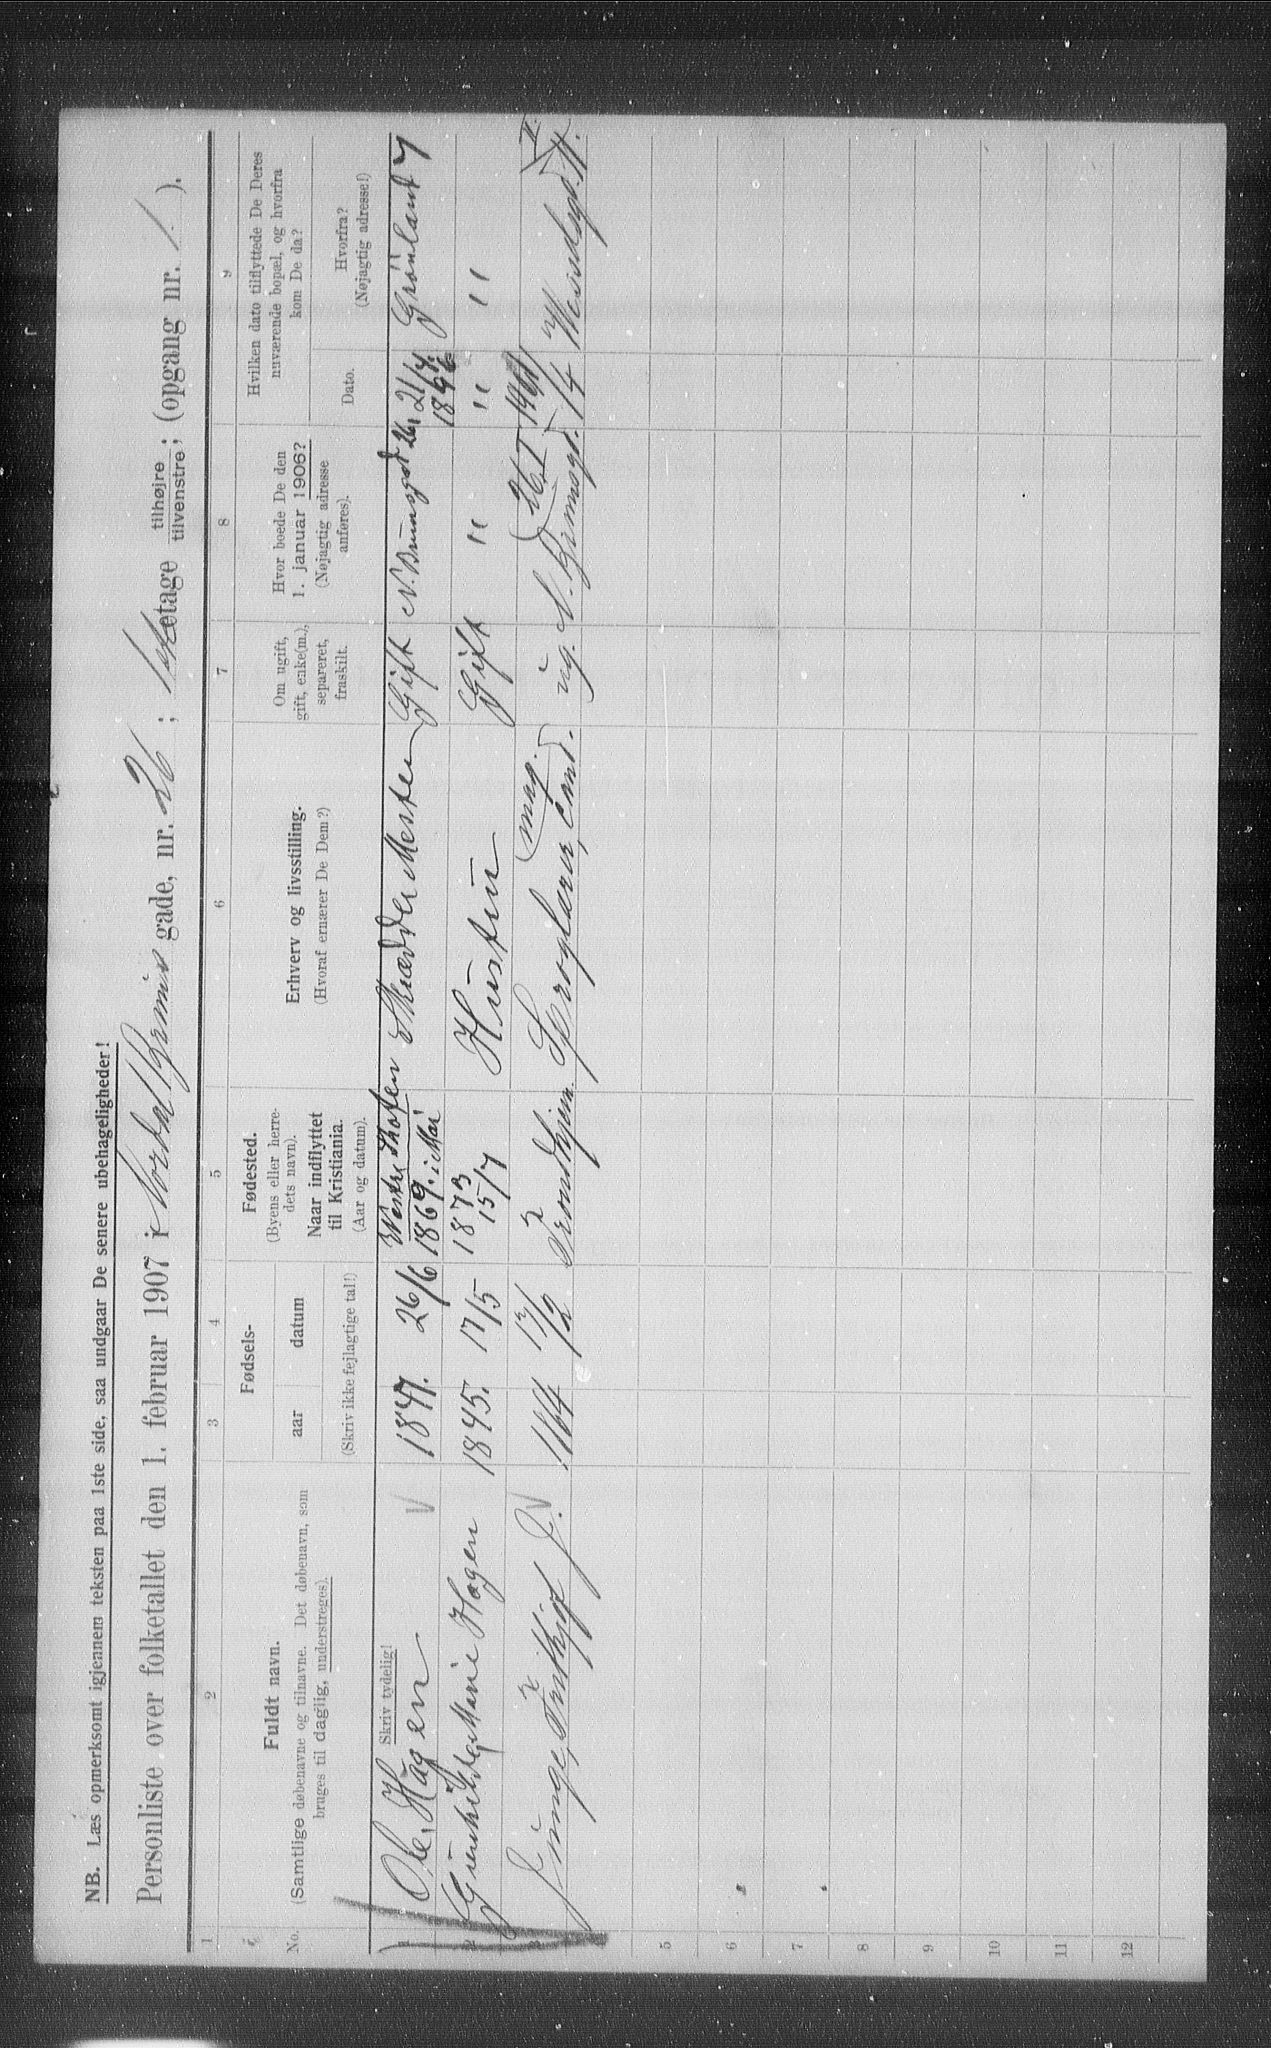 NB. Læs opmerksomt igjennem teksten paa 1ste side, saa undgaar De senere ubehageligheder!
Personliste over folketallet den 1. februar 1907 i Nordal Bruns gade, nr. 26; 1ste etage tilhøjre tilvenstre; (opgang nr. 1).
1 2 3 4 5 6 7 8 9
No.
Fuldt navn.
(Samtlige døbenavne og tilnavne. Det døbenavn, som
bruges til daglig, understreges).
Skriv tydelig!
Fødsels-
aar datum
(Skriv ikke fejlagtige tal!)
Fødested.
(Byens eller herre-
dets navn).
Naar indflyttet
til Kristiania.
(Aar og datum).
Erhverv og livsstilling.
(Hvoraf ernærer De Dem?)
Om ugift,
gift, enke(m.),
separeret,
fraskilt.
Hvor boede De den
1. januar 1906?
(Nøjagtig adresse
anføres).
Hvilken dato tilflyttede De Deres
nuværende bopæl, og hvorfra
kom De da?
Dato.
Hvorfra?
(Nøjagtig adresse!)
1 Ole Hagen 1847. 26/6 1869. i Mai Skrædder Mester Gift N. Brunsgd 26, 21/4 1896 Grönland 7
2 Marie Hagen 1845. 17/5 1873 15/7 Hustru Gift " " "
3 1864 13/2 Trondhjem cand. mag. ug. N. Brunsgt. 26 I 14
4
5
6
7
8
9
10
11
12